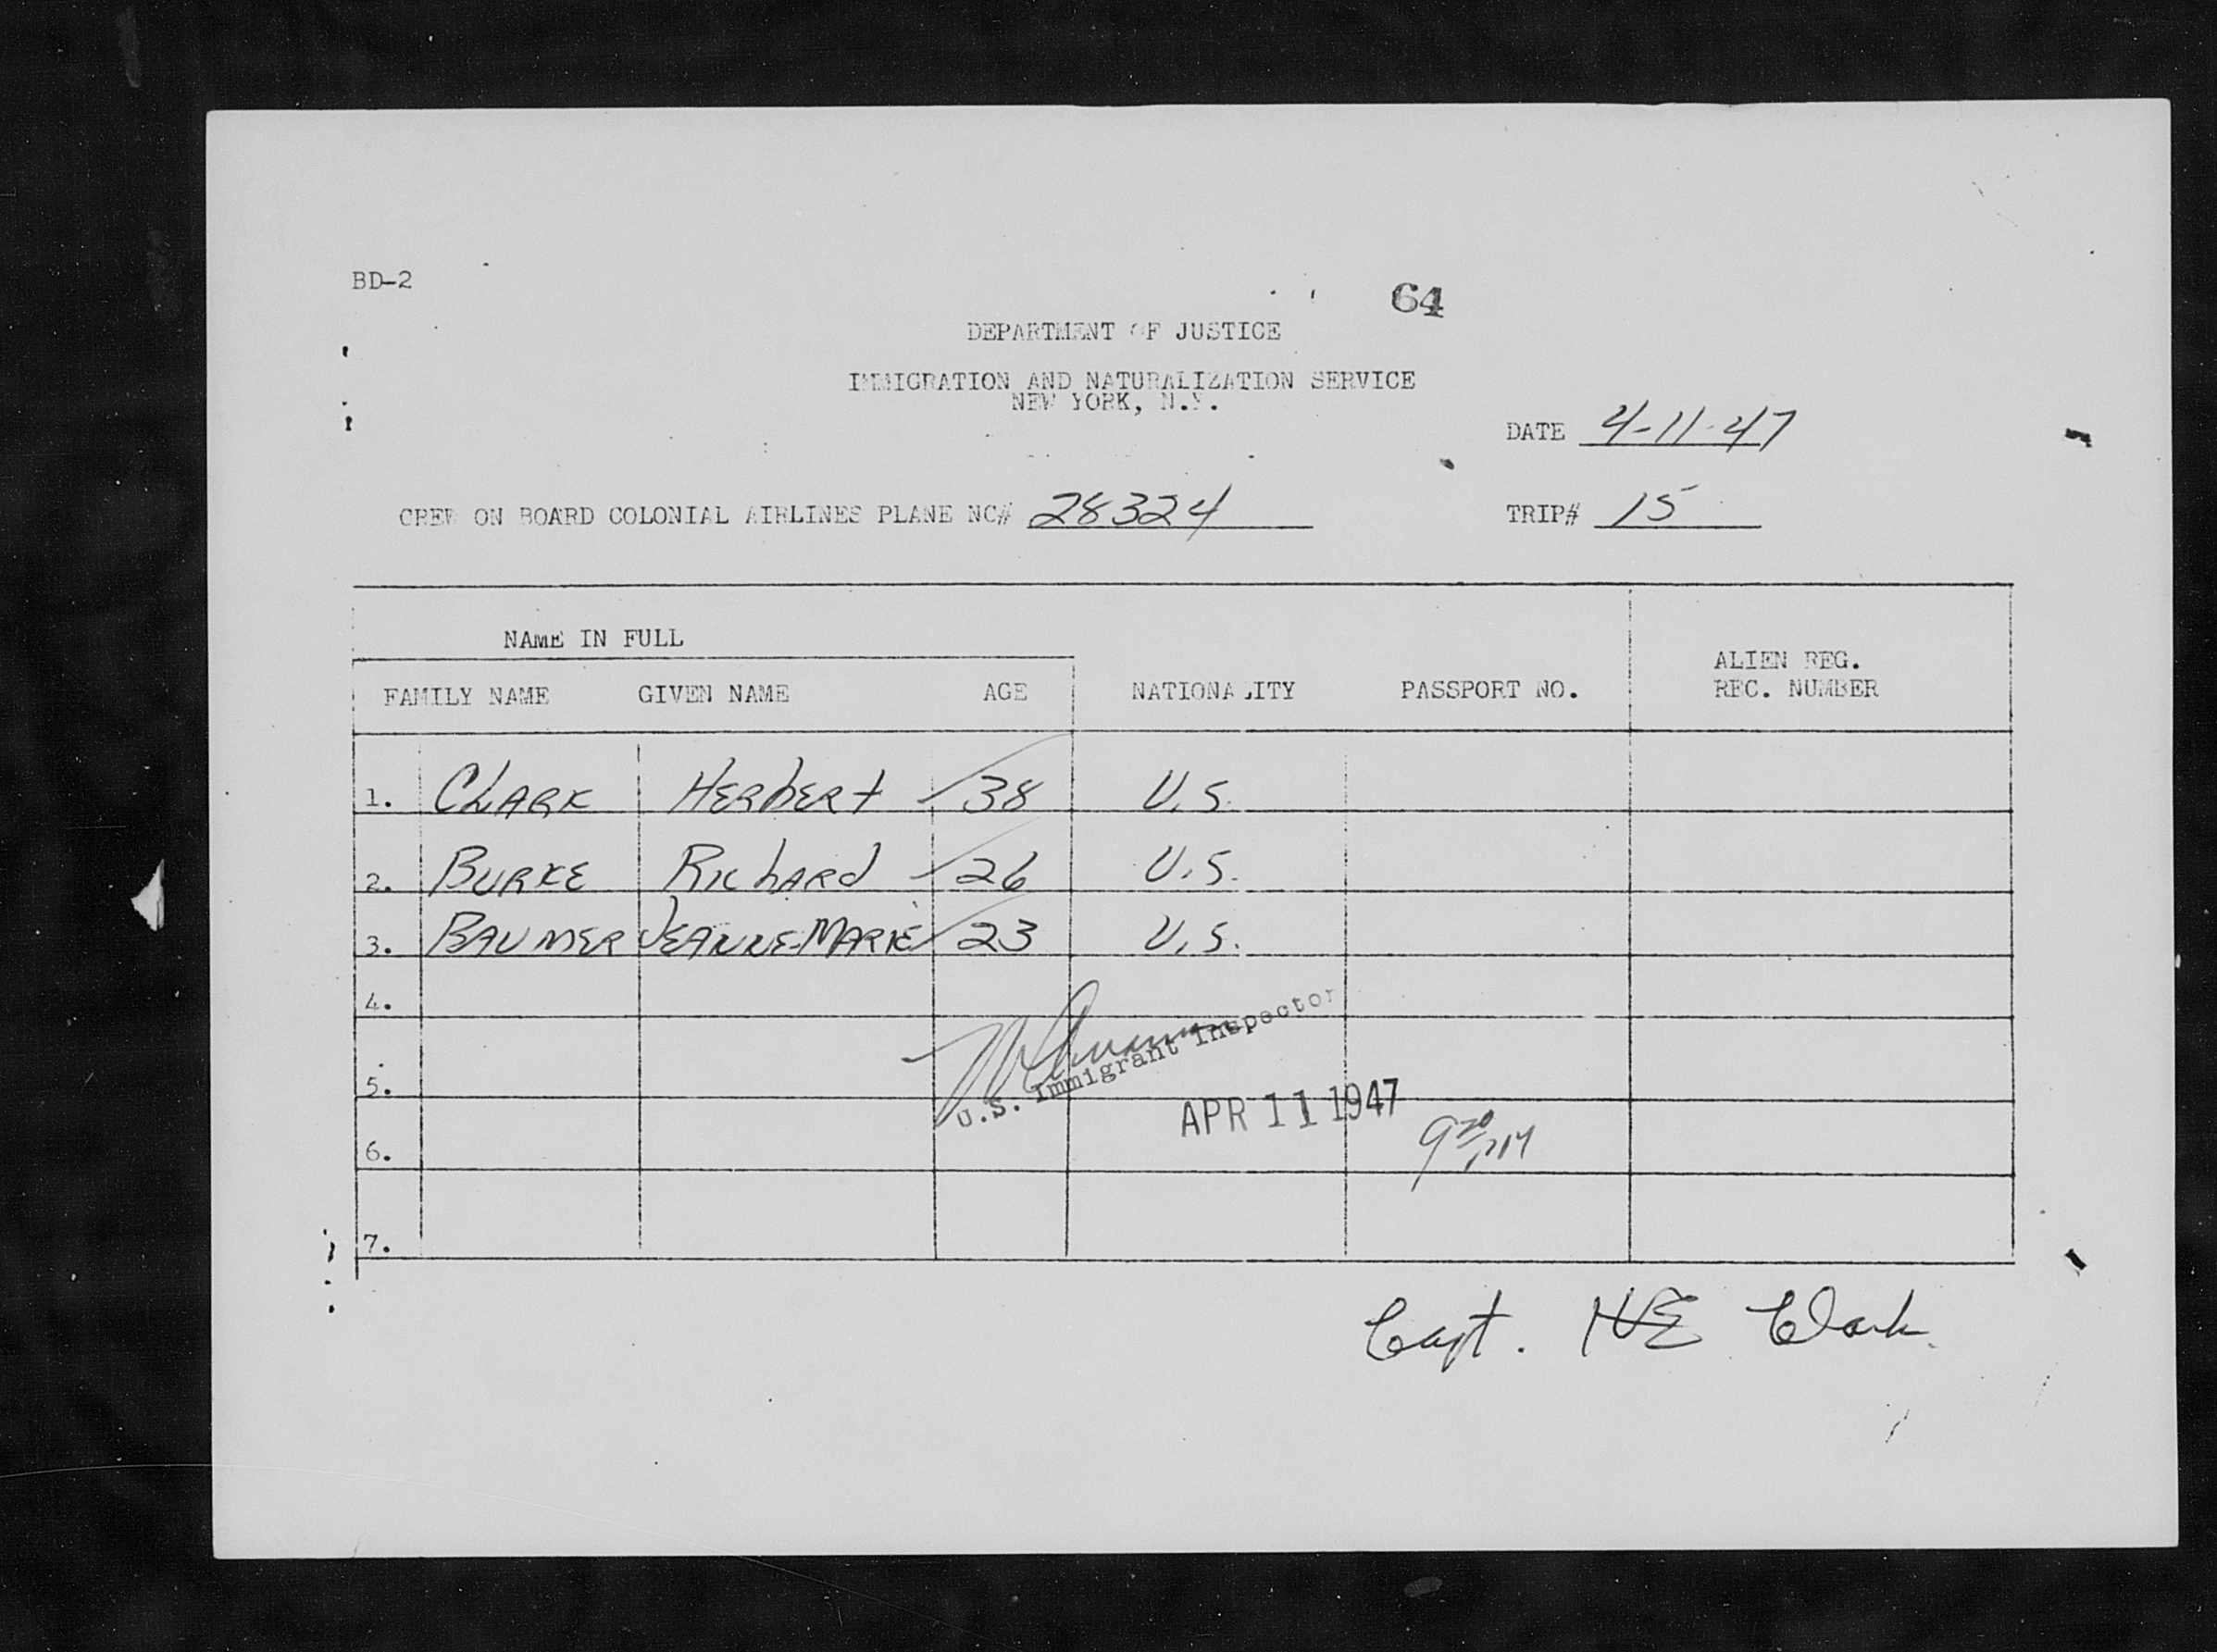 BD-2
64
DEPARTMENT OF JUSTICE
IMMIGRATION AND NATURALIZATION SERVICE
NEW YORK, N.Y.
DATE 4-11-47
CREW ON BOARD COLONIAL AIRLINES PLANE NC# 28324 TRIP# 15
NAME IN FULL
FAMILY NAME GIVEN NAME AGE NATIONALITY PASSPORT NO. ALIEN REG. REC. NUMBER
1. CLARK HERBERT 38 U.S.
2. BURKE RICHARD 26 U.S.
3. BAUMER JEANNE-MARIE 23 U.S.
4.
U.S. Immigrant Inspector
5.
APR 11 1947
6. 9 20 PM
7.
Capt. HE Clark.